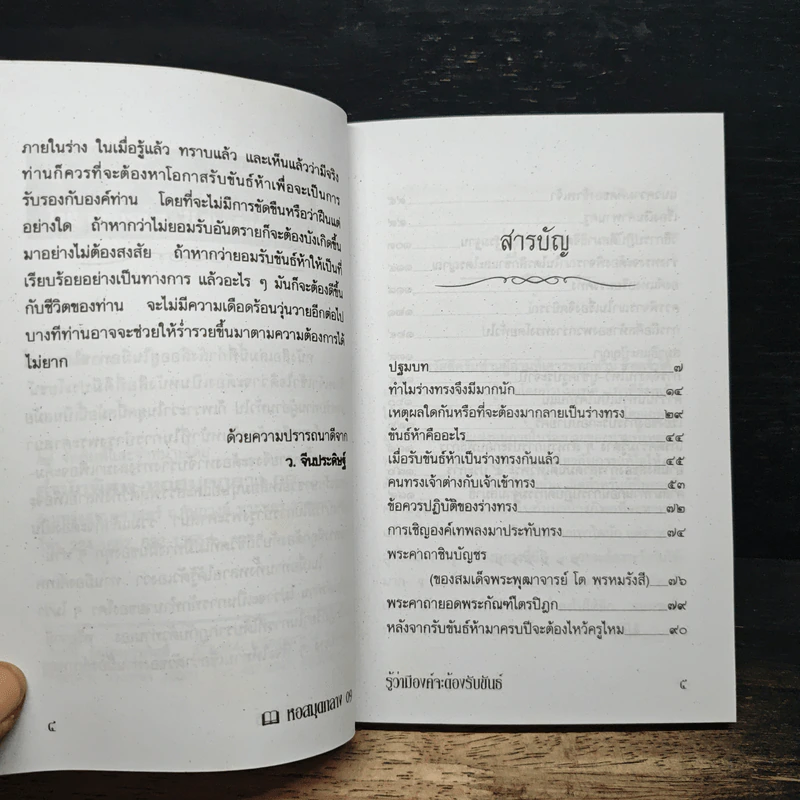 ภายในร่าง ในเมื่อรู้แล้ว ทราบแล้ว และเห็นแล้วว่ามีจริง
ท่านก็ควรที่จะต้องหาโอกาสรับขันธ์ห้าเพื่อจะเป็นการ
รับรองกับองค์ท่าน โดยที่จะไม่มีการขัดขืนหรือว่าฝืนแต่
อย่างใด ถ้าหากว่าไม่ยอมรับอันตรายก็จะต้องบังเกิดขึ้น
มาอย่างไม่ต้องสงสัย ถ้าหากว่ายอมรับขันธ์ห้าให้เป็นที่
เรียบร้อยอย่างเป็นทางการ แล้วอะไร ๆ มันก็จะต้องดีขึ้น
กับชีวิตของท่าน จะไม่มีความเดือดร้อนวุ่นวายอีกต่อไป
บางทีท่านอาจจะช่วยให้ร่ำรวยขึ้นมาตามความต้องการได้
ไม่ยาก
ด้วยความปรารถนาดีจาก
ว. จีนประดิษฐ์
๔
หอสมุดกลาง 09
สารบัญ
ปฐมบท ๗
ทำไมร่างทรงจึงมีมากนัก ๑๔
เหตุผลใดกันหรือที่จะต้องมากลายเป็นร่างทรง ๒๙
ขันธ์ห้าคืออะไร ๔๔
เมื่อรับขันธ์ห้าเป็นร่างทรงกันแล้ว ๔๕
คนทรงเจ้าต่างกับเจ้าเข้าทรง ๕๓
ข้อควรปฏิบัติของร่างทรง ๗๒
การเชิญองค์เทพลงมาประทับทรง ๗๔
พระคาถาชินบัญชร
(ของสมเด็จพระพุฒาจารย์ โต พรหมรังสี) ๗๖
พระคาถายอดพระกัณฑ์ไตรปิฎก ๗๙
หลังจากรับขันธ์ห้ามาครบปีจะต้องไหว้ครูไหม ๙๐
รู้ว่ามีองค์จะต้องรับขันธ์
๕